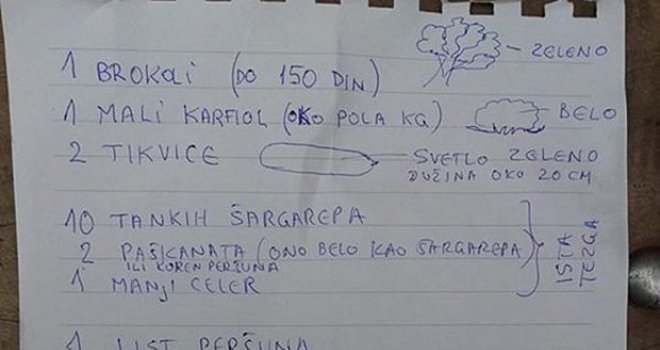 1 BROKOLI (DO 150 DIN) - ZELENO
1 MALI KARFIOL (OKO POLA KG) - BELO
2 TIKVICE - SVETLO ZELENO
DUŽINA OKO 20 CM
10 TANKIH ŠARGAREPA
2 PAŠKANATA (ONO BELO KAO ŠARGAREPA)
ILI KOREN PERŠUNA
1 MANJI CELER
ISTA
TEZGA
1 LIST PERŠUNA